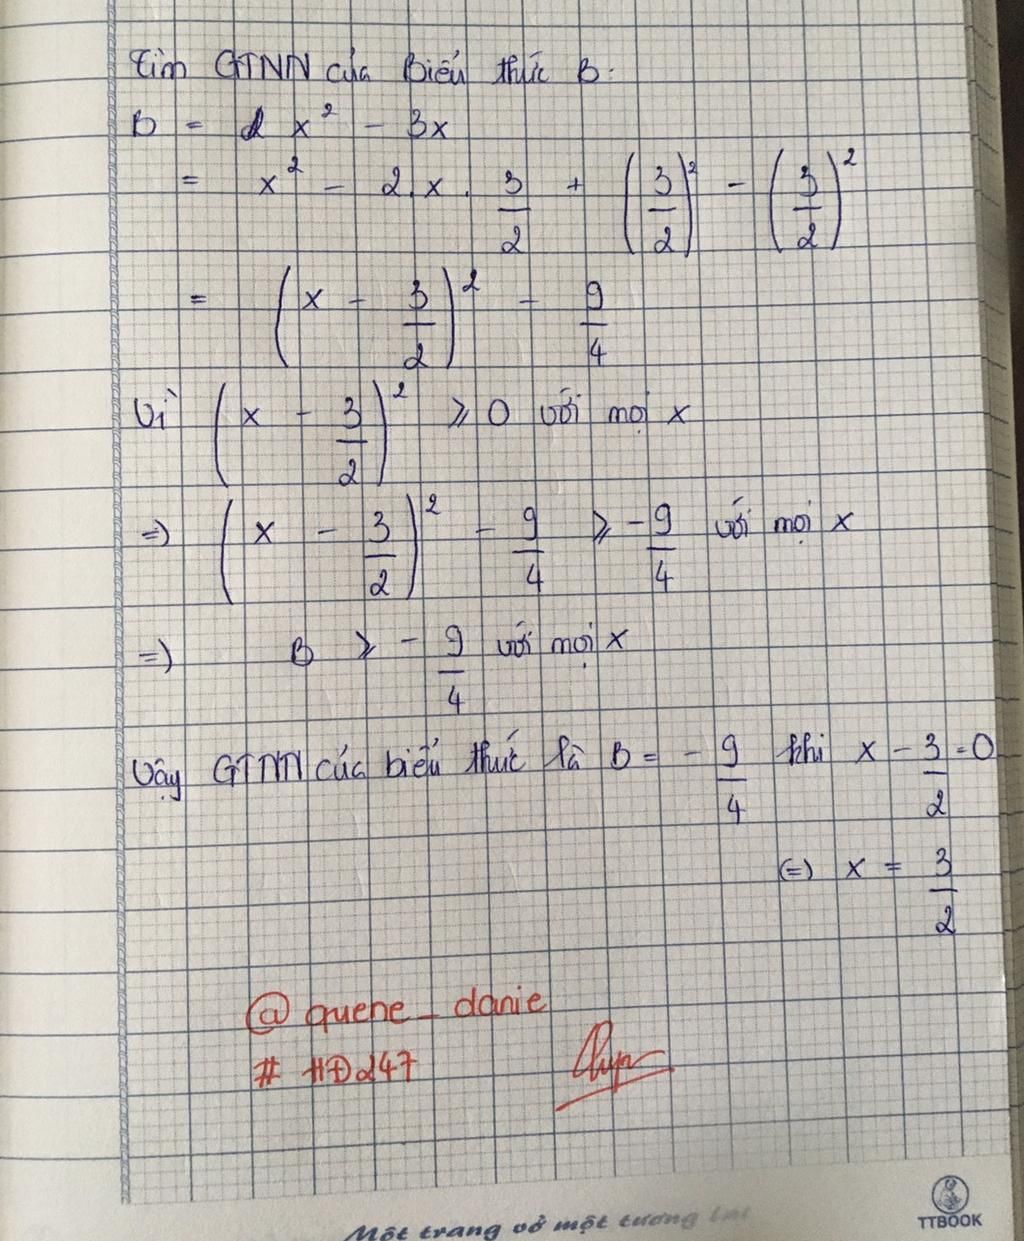 Tìm GTNN của Biểu thức B.
B = x² - 3x
= x² - 2.x. 3/2 + (3/2)² - (3/2)²
= (x - 3/2)² - 9/4
Vì (x - 3/2)² ⩾ 0 với mọi x
=) (x - 3/2)² - 9/4 ⩾ -9/4 với mọi x
=) B ⩾ - 9/4 với mọi x
Vậy GTNN của biểu thức là B = - 9/4 khi x - 3/2 = 0
(=) x = 3/2
@ quene_danie
# HĐ247
Một trang vở một tương lai
TTBOOK